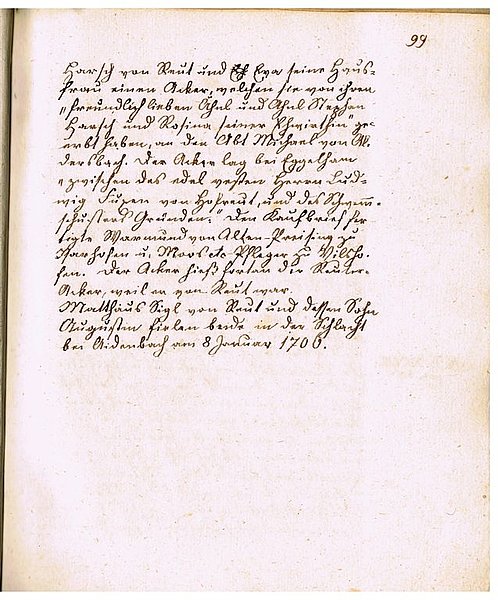 99
Harsch von Reut und Eva seine Haus=
frau einen Acker, welchen sie von ihren
„freundlich lieben Ahnl und Ahnl Stephan
Harsch und Rosina seiner Ehwirthin“ ge=
erbt haben, an den Abt Michael von Al=
dersbach. Der Acker lag bei Egglham
„zwischen des edel vesten Herrn Lud=
wig von Hofreut, und des
schusters Gründen.“ Den Kaufbrief fer=
tigte Warmund von Alten-Preising zu
u. Moos etc Pfleger zu Vilsho=
fen. Der Acker hieß fortan der Reuter=
Acker, weil er von Reut war.
Matthäus Sigl von Reut und dessen Sohn
Augustin fielen beide in der Schlacht
bei Aidenbach am 8 Januar 1706.